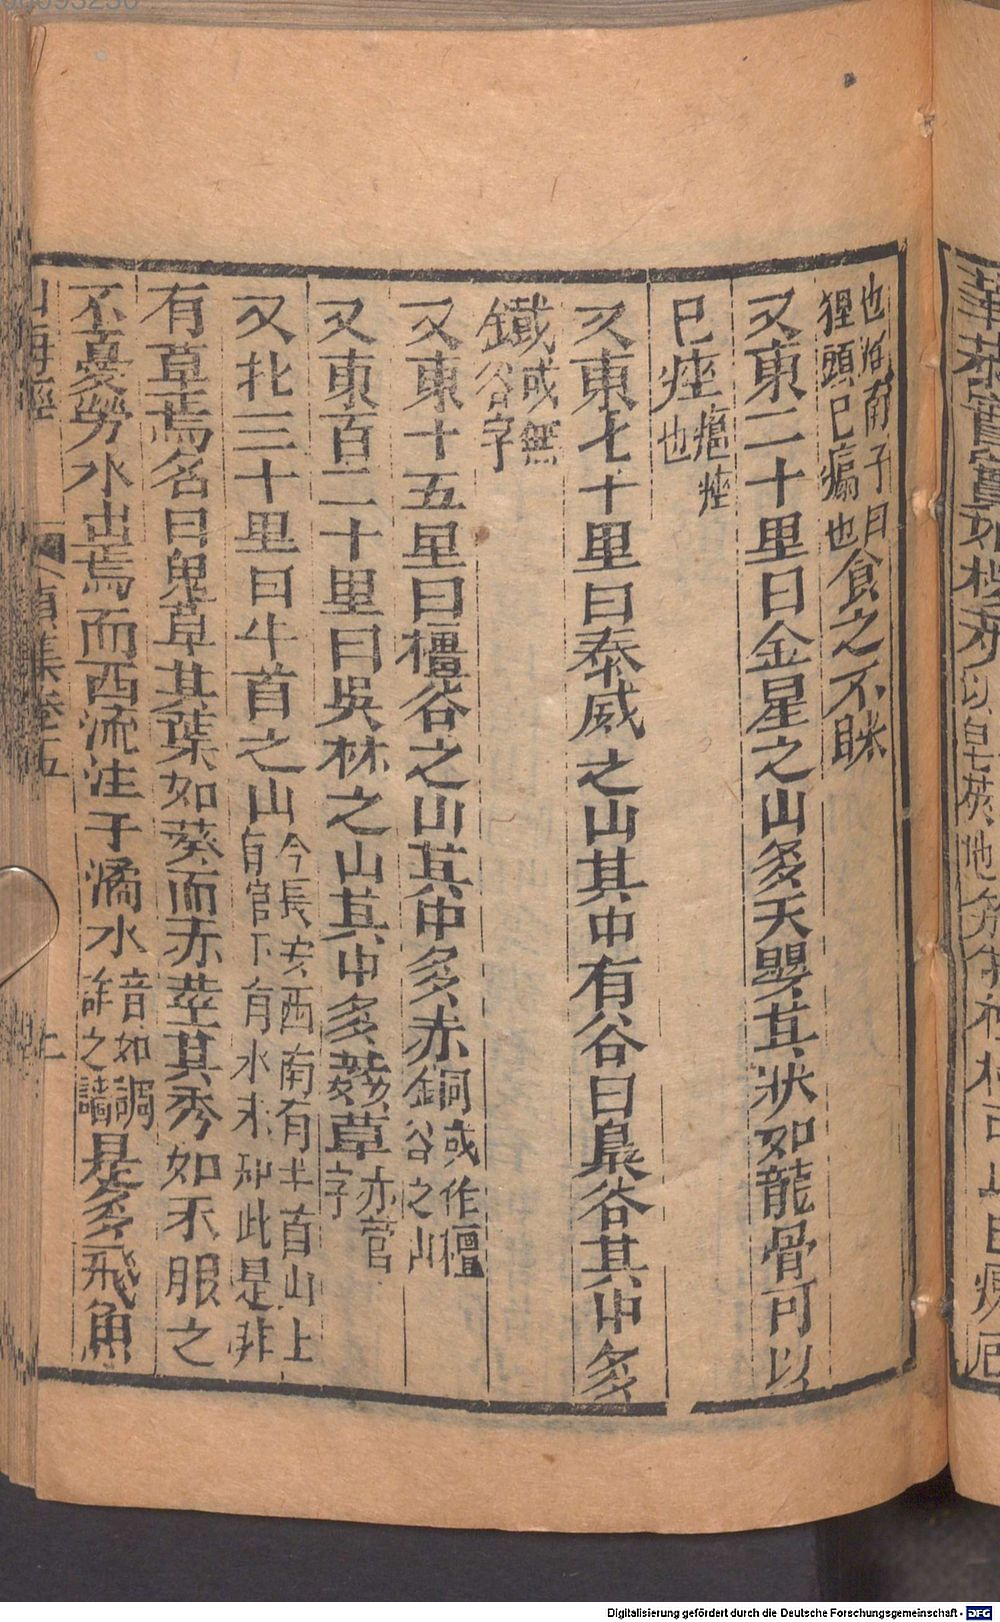 華黃實實如樱
也淮南子曰貍頭已瘺也食之不眯
又東二十里曰金星之山多天嬰其狀如龍骨可以
已痤癰痤也
又東七十里曰泰威之山其中有谷曰梟谷其中多
鐵或無谷字
又東十五里曰橿谷之山其中多赤銅或作檀谷之山
又東百二十里曰吳林之山其中多葌草亦菅字
又北三十里曰牛首之山今長安西南有牛首山上有官下有水未知此是非
有草焉名曰鬼草其葉如葵而赤莖其秀如禾服之
不憂勞水出焉而西流注于潏水音如譎詐之譎是多飛魚
山海經 卷五
Digitalisierung gefördert durch die Deutsche Forschungsgemeinschaft - DFG